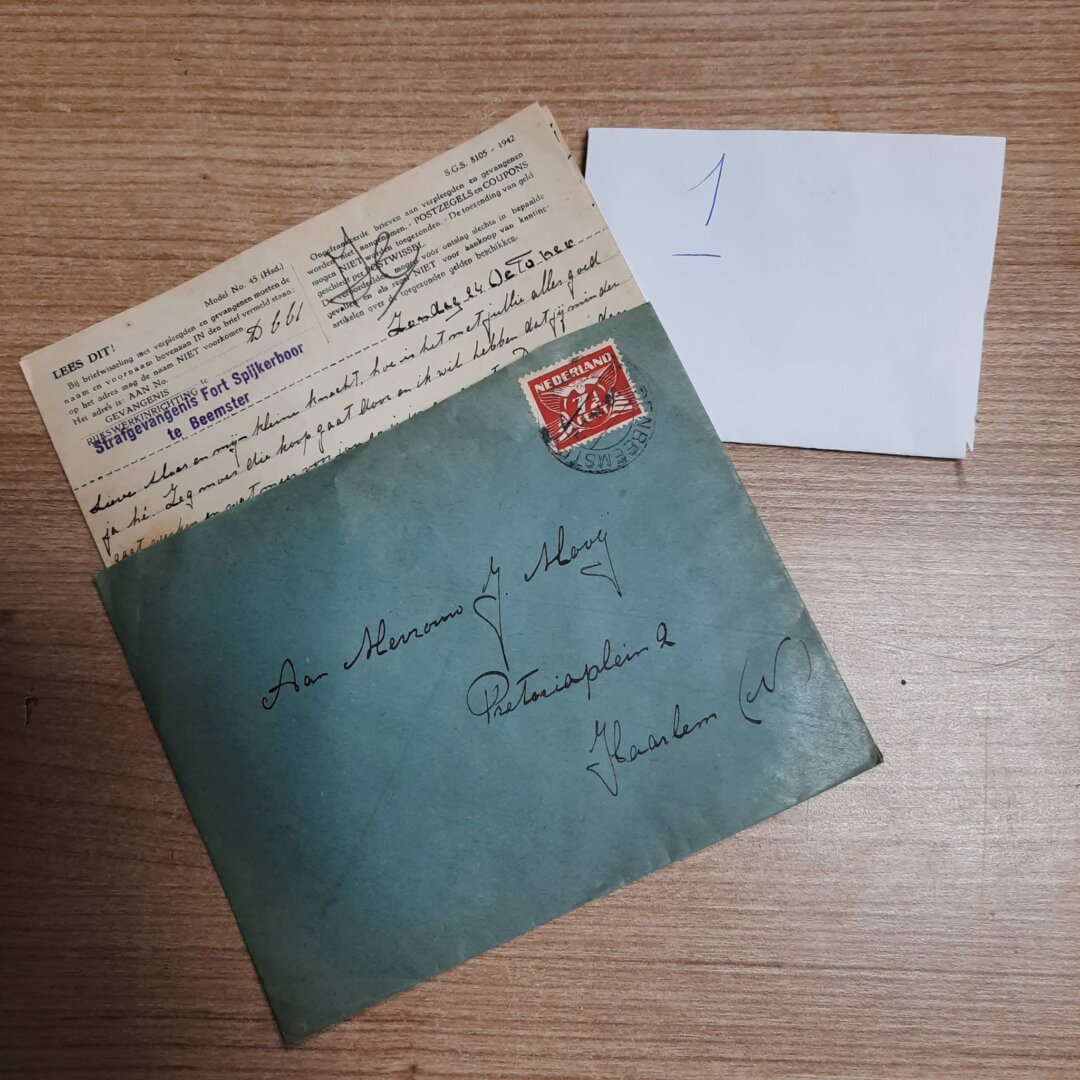 S.G.S. 8105 - 1942
Model No. 45 (Hsd.)
LEES DIT!
Bij briefwisseling met verpleegden en gevangenen moeten de
naam en voornaam bovenaan IN den brief vermeld staan:
op het adres mag de naam NIET voorkomen.
Het adres is: AAN No. D 661
GEVANGENIS
RIJKSWERKINRICHTING te
Strafgevangenis Fort Spijkerboor
te Beemster
Ongefrankeerde brieven aan verpleegden en gevangenen
worden niet aangenomen. - POSTZEGELS en COUPONS
mogen NIET worden toegezonden. - De toezending van geld
geschiedt per POSTWISSEL.
De veroordeelden mogen vóór ontslag slechts in bepaalde
gevallen en als regel NIET voor aankoop van kantine-
artikelen over de toegezonden gelden beschikken.
Zondag 24 October
Lieve Moes en mijn kleine knecht, hoe is het met jullie alles goed
ja hé. Zeg moes die koop gaat door en ik wil hebben dat jij minder
gaat werken en wat meer
NEDERLAND
7½
CENT
Aan Mevrouw J. Mooij
Pretoriaplein 2
Haarlem (N)
1